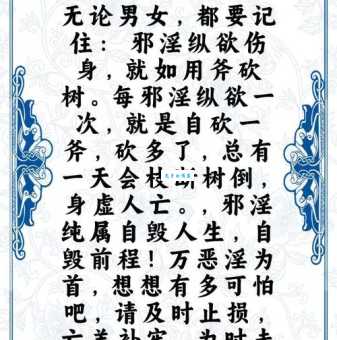 无论男女，都要记
住：邪淫纵欲伤
身，就如用斧砍
树。每邪淫纵欲一
次，就是自砍一
斧，砍多了，总有
一天会枝断树倒，
身虚人亡。，邪淫
纯属自毁人生，自
毁前程！万恶淫为
首，想想有多可怕
吧，请及时止损，
亡羊补牢，为时未